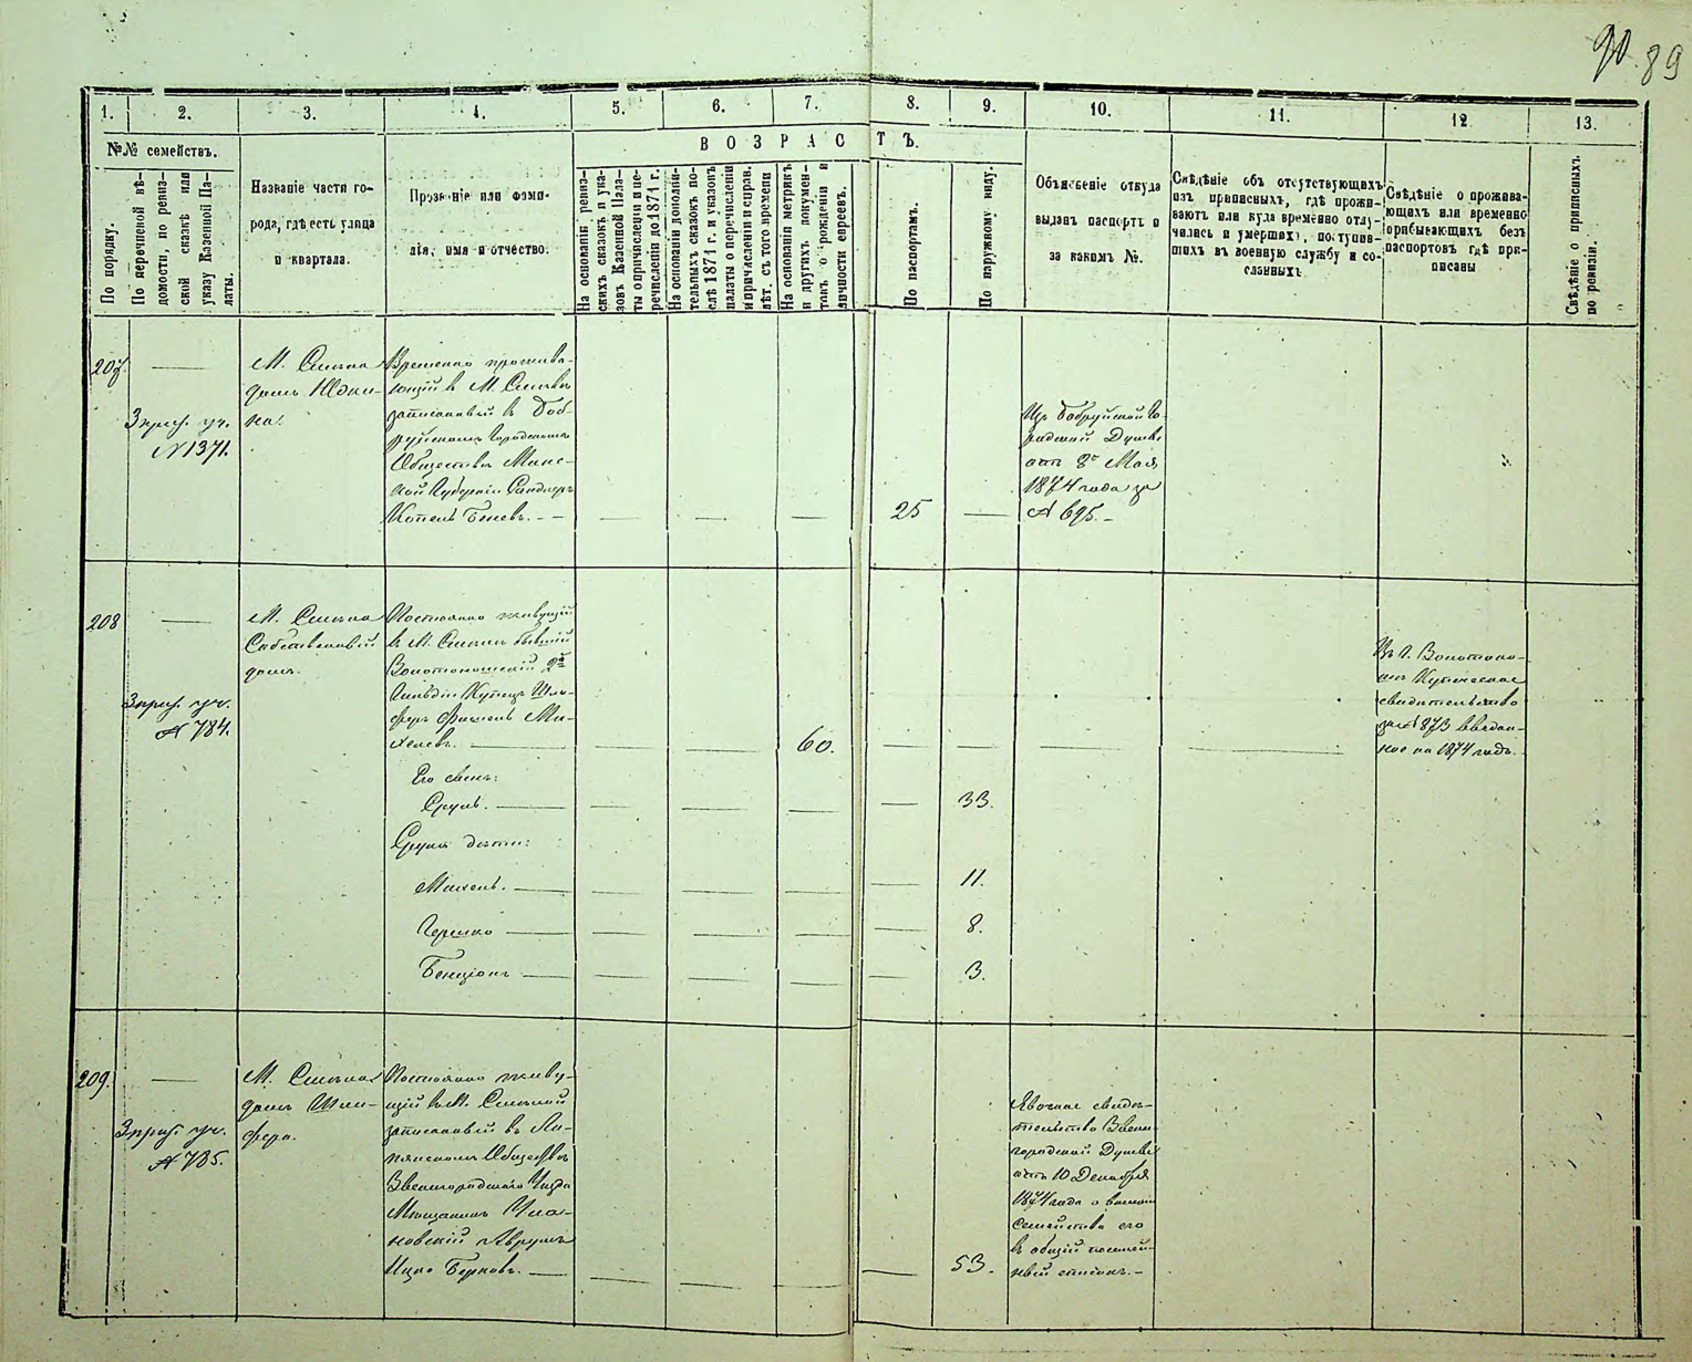 90. 89
1. 2. 3. 4. 5. 6. 7. 8. 9. 10. 11. 12. 13.
№№ семействъ.
В О З Р А С Т Ъ.
По порядку.
По перечневой вѣ-
домости, по ревиз-
ской сказкѣ или
указу Казенной Па-
латы.
Названіе части го-
рода, гдѣ есть улица
и квартала.
Прозваніе или фами-
лія, имя и отчество.
На основаніи ревиз-
скихъ сказокъ и ука-
зовъ Казенной Пала-
ты о причисленіи и пе-
речисленіи до 1871 г.
На основаніи дополни-
тельныхъ сказокъ по-
слѣ 1871 г. и указовъ
палаты о перечисленіи
и причисленіи и справ.
лѣт. съ того времени
На основаніи метрикъ
и другихъ докумен-
товъ о рожденіи и
личности евреевъ.
По паспортамъ.
По наружному виду.
Объясненіе откуда
выданъ паспортъ и
за какимъ №.
Свѣдѣніе объ отсутствующихъ
изъ приписныхъ, гдѣ прожи-
ваютъ или куда временно отлу-
чились и умершихъ, поступив-
шихъ въ военную службу и со-
сланныхъ
Свѣдѣніе о прожива-
ющихъ или временно
прибывающихъ безъ
паспортовъ гдѣ при-
писаны
Свѣдѣніе о приписныхъ
по ревизіи.
207.
3 приз. уч.
№ 1371.
М. Смѣла
домъ
Временно прожива-
ющій в М. Смѣлѣ
записанный в Боб-
руйскомъ Городскомъ
Обществѣ Минс-
кой Губерніи
Копель Беневъ.
25
Изъ Бобруйской Го-
родской Думы
отъ 8го Мая
1874 года за
№ 695.
208
3 приз. уч.
№ 784.
М. Смѣла
Собственный
домъ.
Постоянно живущій
в М. Смѣлѣ бывшій
Золотоношскій 2й
Гильдіи Купецъ Шли-
феръ Фишель Ми-
хелевъ.
60.
Въ Г. Золотоно-
шѣ Купеческое
свидетельство
за 1873
на 1874 годъ.
Его сынъ:
Сруль. 33.
Сруля дѣти:
Михель. 11.
Гершко 8.
Бенціонъ 3.
209.
3 приз. уч.
№ 785.
М. Смѣла
домъ Шли-
фера.
Постоянно живу-
щій въ М. Смѣлой
записанный въ
Обществѣ
Звенигородского Уѣзда
Мѣщанинъ
Аврумъ
Ицко Берковъ.
53.
Явочное свидѣ-
тельство Звени-
городской Думы
отъ 10 Декабря
1874 года о
семейства его
въ общій посемей-
ный списокъ.